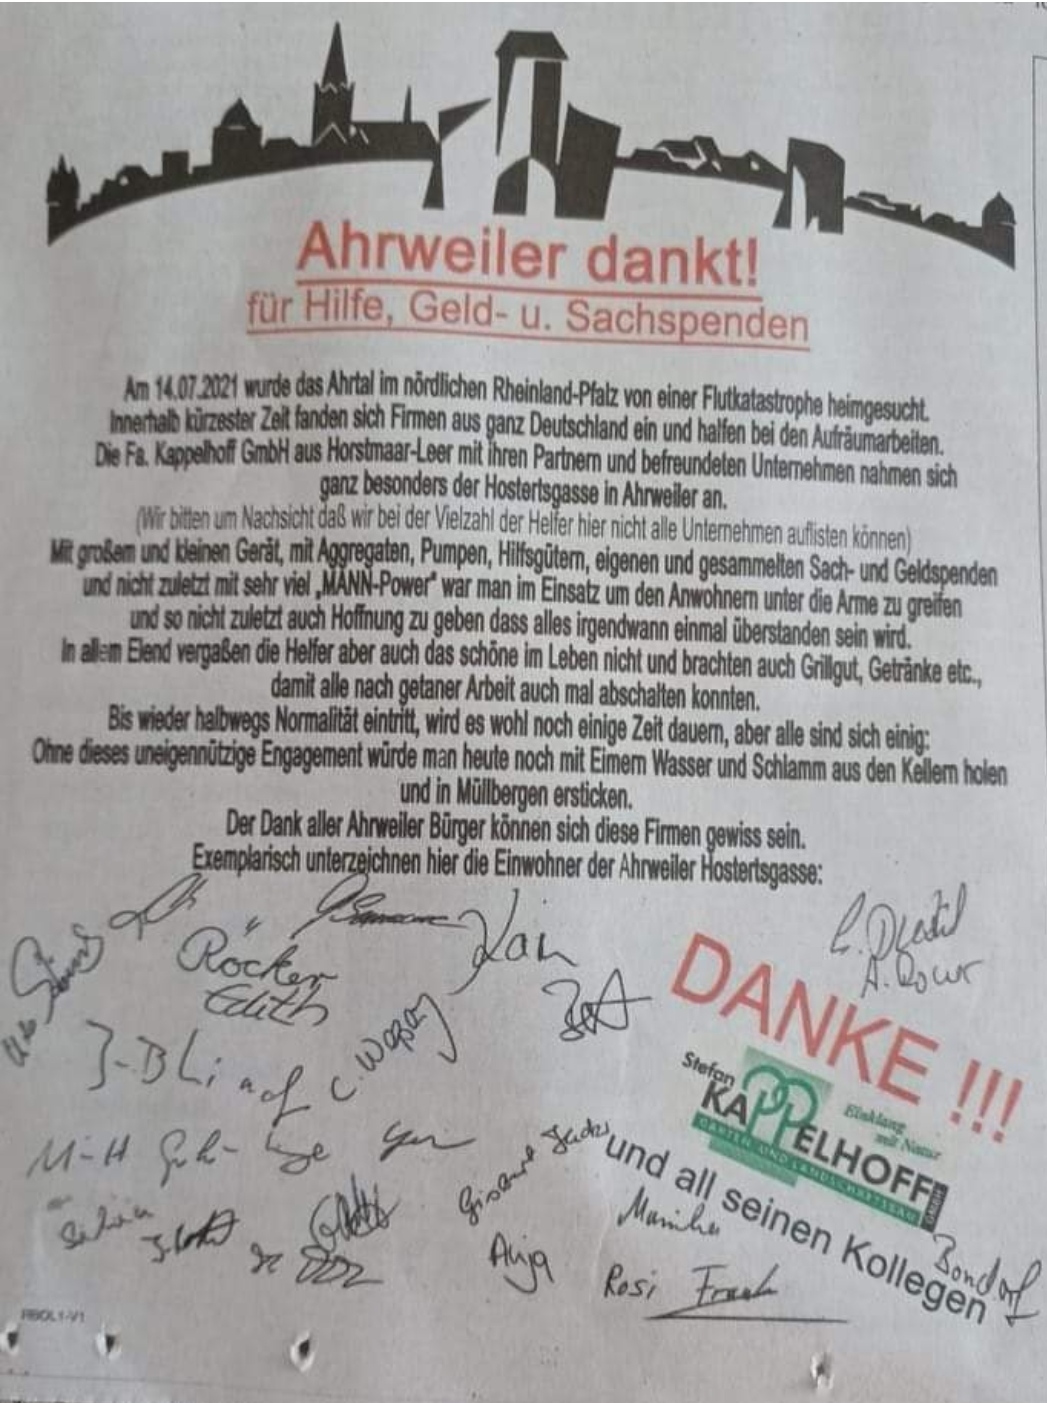 Ahrweiler dankt!
für Hilfe, Geld- u. Sachspenden
Am 14.07.2021 wurde das Ahrtal im nördlichen Rheinland-Pfalz von einer Flutkatastrophe heimgesucht.
Innerhalb kürzester Zeit fanden sich Firmen aus ganz Deutschland ein und halfen bei den Aufräumarbeiten.
Die Fa. Kappelhoff GmbH aus Horstmaar-Leer mit ihren Partnern und befreundeten Unternehmen nahmen sich
ganz besonders der Hostertsgasse in Ahrweiler an.
(Wir bitten um Nachsicht daß wir bei der Vielzahl der Helfer hier nicht alle Unternehmen auflisten können)
Mit großem und kleinen Gerät, mit Aggregaten, Pumpen, Hilfsgütern, eigenen und gesammelten Sach- und Geldspenden
und nicht zuletzt mit sehr viel „MANN-Power" war man im Einsatz um den Anwohnern unter die Arme zu greifen
und so nicht zuletzt auch Hoffnung zu geben dass alles irgendwann einmal überstanden sein wird.
In allem Elend vergaßen die Helfer aber auch das schöne im Leben nicht und brachten auch Grillgut, Getränke etc.,
damit alle nach getaner Arbeit auch mal abschalten konnten.
Bis wieder halbwegs Normalität eintritt, wird es wohl noch einige Zeit dauern, aber alle sind sich einig:
Ohne dieses uneigennützige Engagement würde man heute noch mit Eimern Wasser und Schlamm aus den Kellern holen
und in Müllbergen ersticken.
Der Dank aller Ahrweiler Bürger können sich diese Firmen gewiss sein.
Exemplarisch unterzeichnen hier die Einwohner der Ahrweiler Hostertsgasse:
Röcker
Edith
DANKE !!!
Stefan
KAPPELHOFF GMBH
Einklang
mit Natur
GARTEN- UND LANDSCHAFTSBAU
und all seinen Kollegen
Anja
Rosi Frank
Bondorf
RBOL1-V1